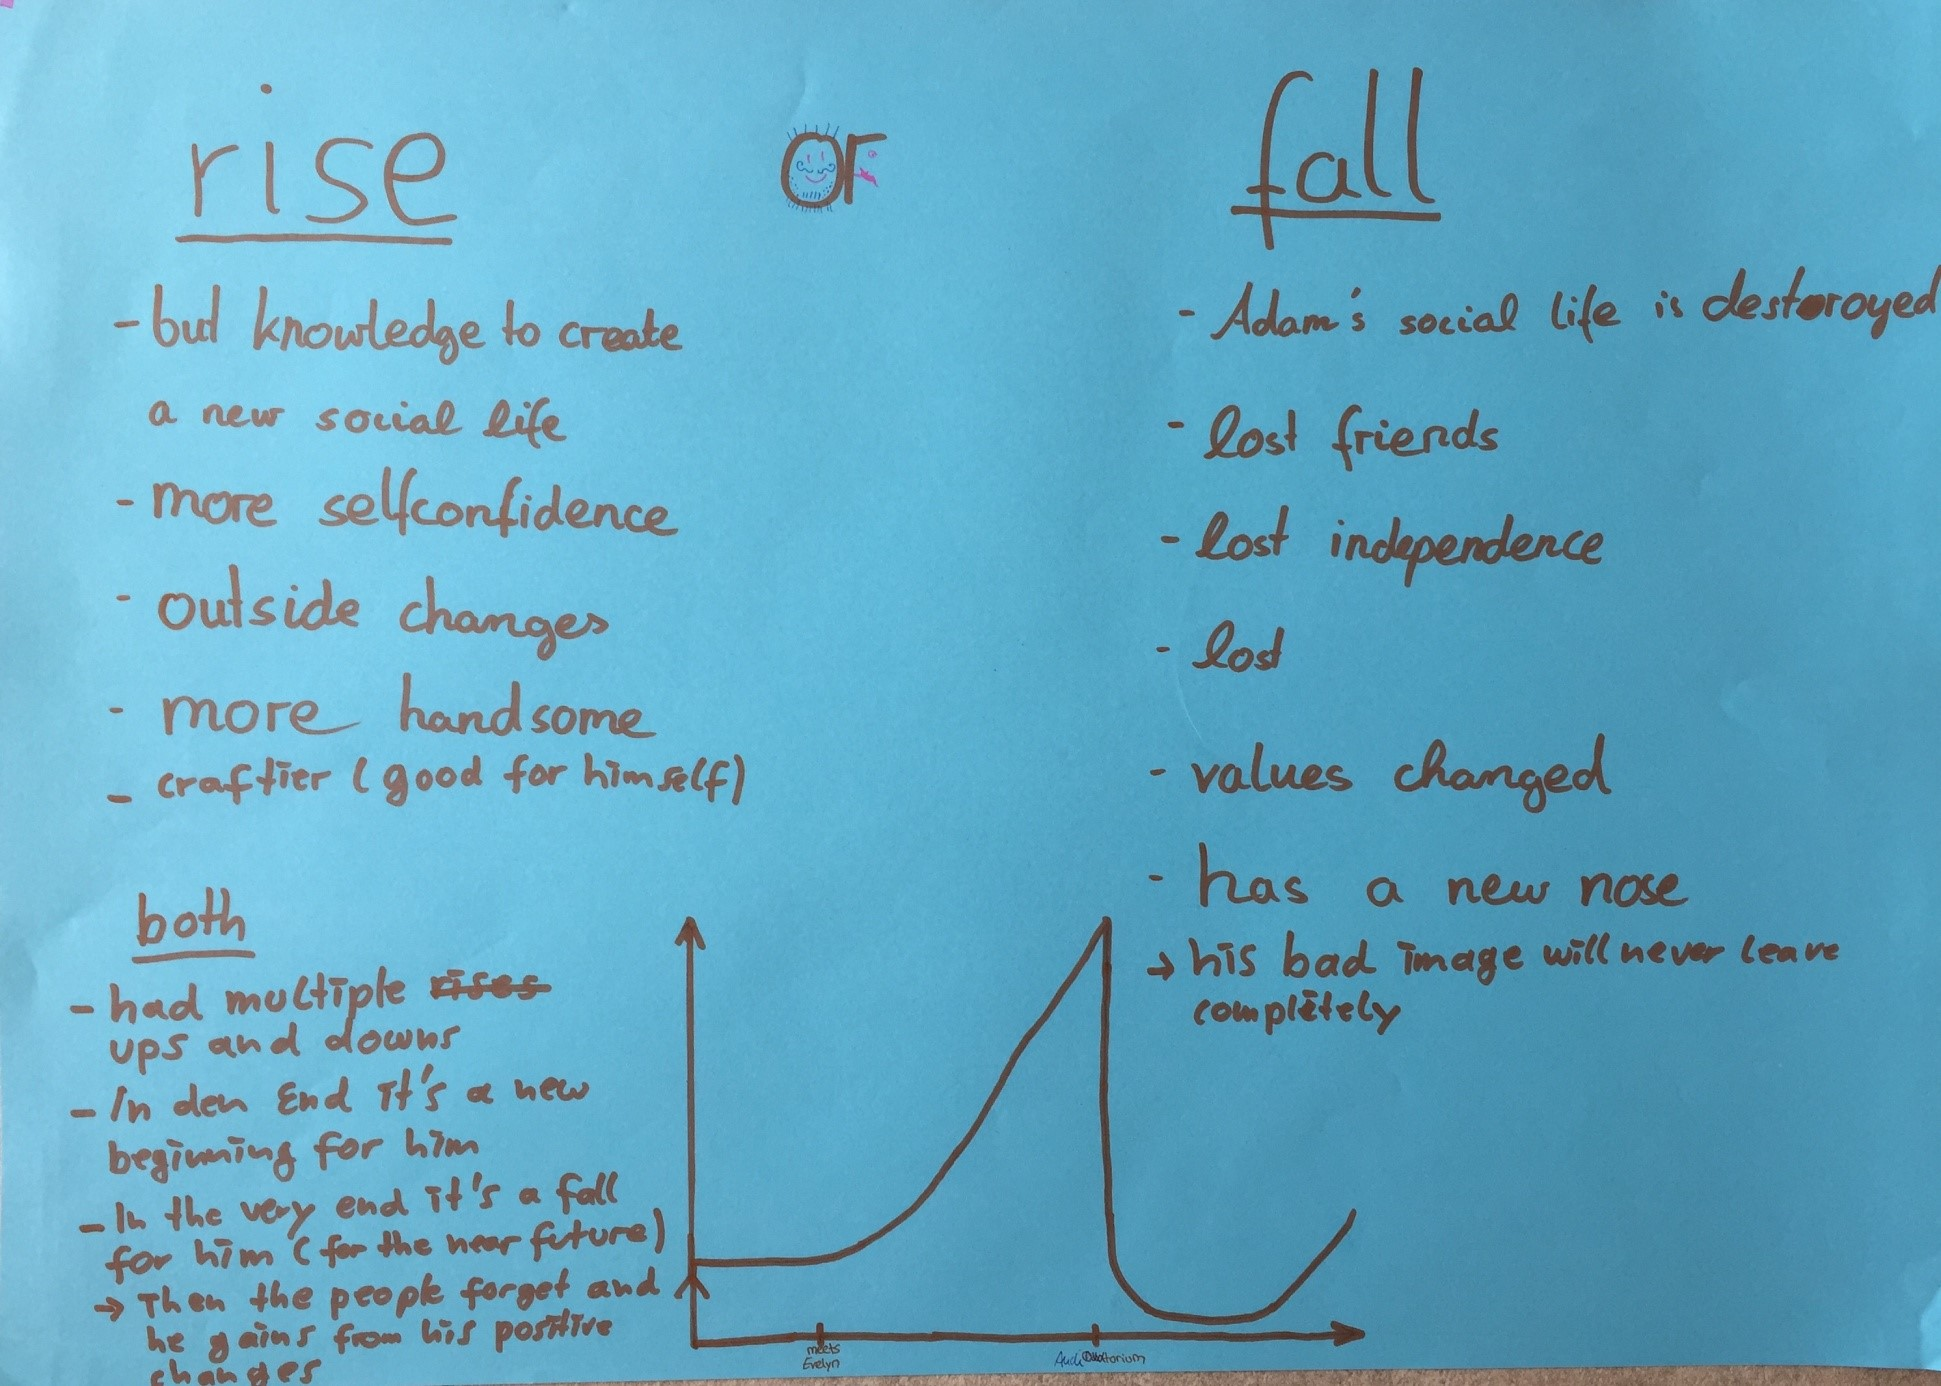 rise or fall
- but knowledge to create
a new social life
- more selfconfidence
- outside changes
- more handsome
- craftier (good for himself)
- Adam's social life is destoroyed
- lost friends
- lost independence
- lost
- values changed
- has a new nose
→ his bad image will never leave
completely
both
- had multiple rises
ups and downs
- In den End it's a new
beginning for him
- In the very end it's a fall
for him (for the near future)
→ Then the people forget and
he gains from his positive
changes
meets
Evelyn